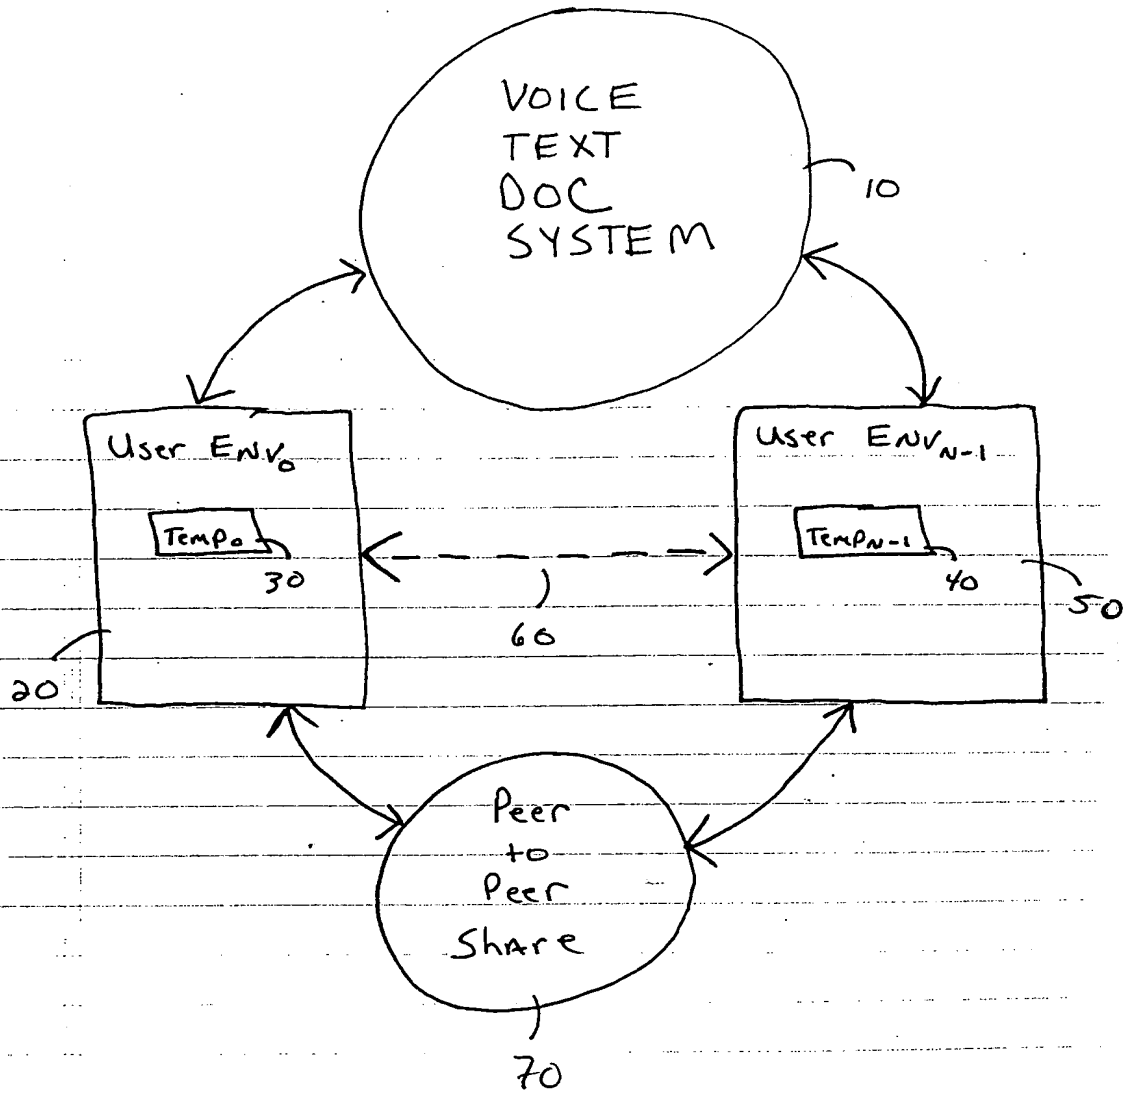 VOICE
TEXT
DOC
SYSTEM
10
User ENV₀
Temp₀
30
20
60
User ENV_N-1
Temp_N-1
40
50
Peer
to
Peer
Share
70